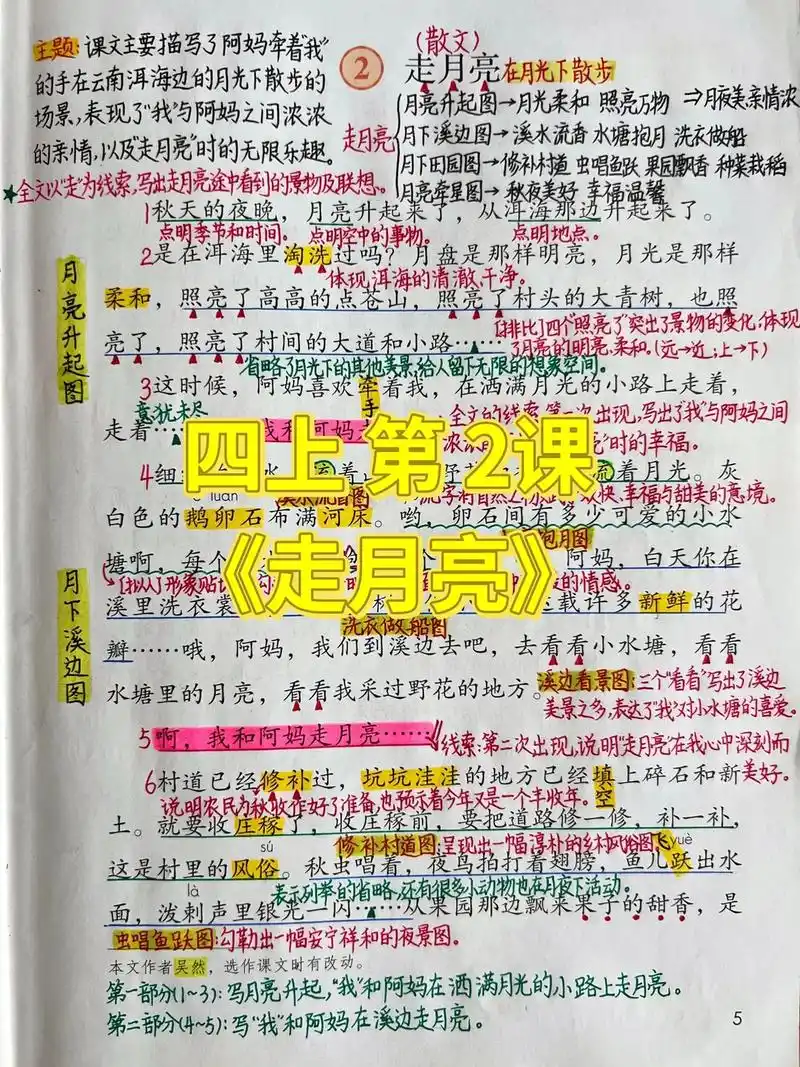 主题:课文主要描写了阿妈牵着"我"
的手在云南洱海边的月光下散步的
场景,表现了"我"与阿妈之间浓浓
的亲情,以及"走月亮"时的无限乐趣。
★全文以"走"为线索,写出走月亮途中看到的景物及联想。
(散文)
2 走月亮 在月光下散步
走月亮
月亮升起图→月光柔和 照亮万物 ⇒月夜美,亲情浓
月下溪边图→溪水流香 水塘抱月 洗衣做船
月下田园图→修补村道 虫唱鱼跃 果园飘香 种菜栽稻
月亮牵星图→秋夜美好 幸福温馨
月亮升起图
1秋天的夜晚,月亮升起来了,从洱海那边升起来了。
点明季节和时间。 点明空中的事物。 点明地点。
2是在洱海里淘洗过吗?月盘是那样明亮,月光是那样
体现洱海的清澈、干净。
柔和,照亮了高高的点苍山,照亮了村头的大青树,也照
亮了,照亮了村间的大道和小路……
[排比]四个"照亮了"突出了景物的变化,体现
了月亮的明亮、柔和。(远→近;上→下)
省略了月光下的其他美景,给人留下无限的想象空间。
3这时候,阿妈喜欢牵着我,在洒满月光的小路上走着,
手
意犹未尽
走着…
全文的线索,第一次出现,写出了"我"与阿妈之间
时的幸福。
四上 第2课
4细
着月光。灰
luǎn
欢快、幸福与甜美的意境。
白色的鹅卵石布满河床。哟,卵石间有多少可爱的小水
抱月图
《走月亮》
月下溪边图
塘啊,每个
阿妈,白天你在
[拟人]形象贴
的情感。
溪里洗衣裳
载许多新鲜的花
洗衣做船图
瓣……哦,阿妈,我们到溪边去吧,去看看小水塘,看看
水塘里的月亮,看看我采过野花的地方。
溪边看景图:三个"看看"写出了溪边
美景之多,表达了"我"对小水塘的喜爱。
5啊,我和阿妈走月亮……
线索:第二次出现,说明"走月亮"在我心中深刻而
美好。
6村道已经修补过,坑坑洼洼的地方已经填上碎石和新
空
说明农民为秋收作好了准备,也预示着今年又是一个丰收年。
土。就要收庄稼了,收庄稼前,要把道路修一修,补一补,
修补村道图:呈现出一幅淳朴的乡村风俗图。
sú
飞
yuè
这是村里的风俗。秋虫唱着,夜鸟拍打着翅膀,鱼儿跃出水
là
表示列举的省略,还有很多小动物也在月夜下活动。
面,泼刺声里银光一闪……从果园那边飘来果子的甜香,是
虫唱鱼跃图:勾勒出一幅安宁祥和的夜景图。
本文作者吴然,选作课文时有改动。
第一部分(1~3):写月亮升起,"我"和阿妈在洒满月光的小路上走月亮。
第二部分(4~5):写"我"和阿妈在溪边走月亮。
5